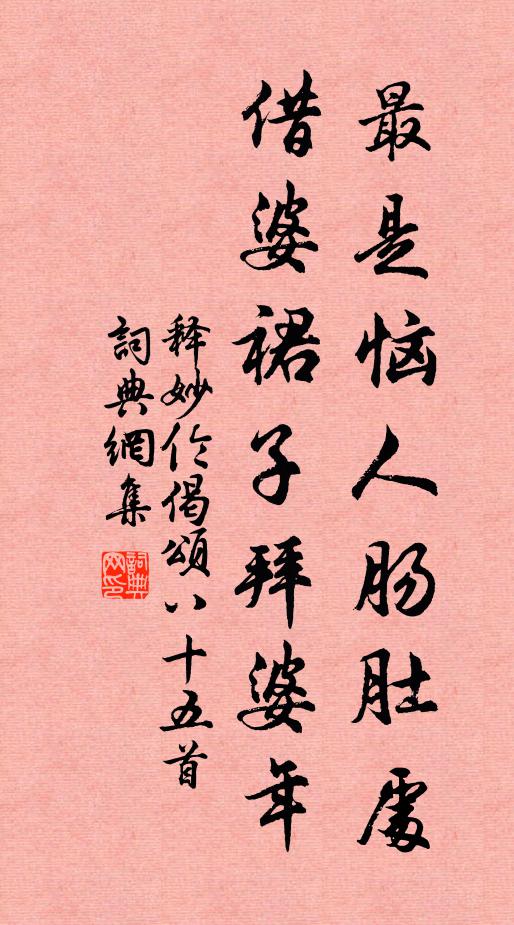 最是恼人肠肚處
借婆裙子拜婆年
释妙伦偈頌八十五首
詞典網集
詞典网印